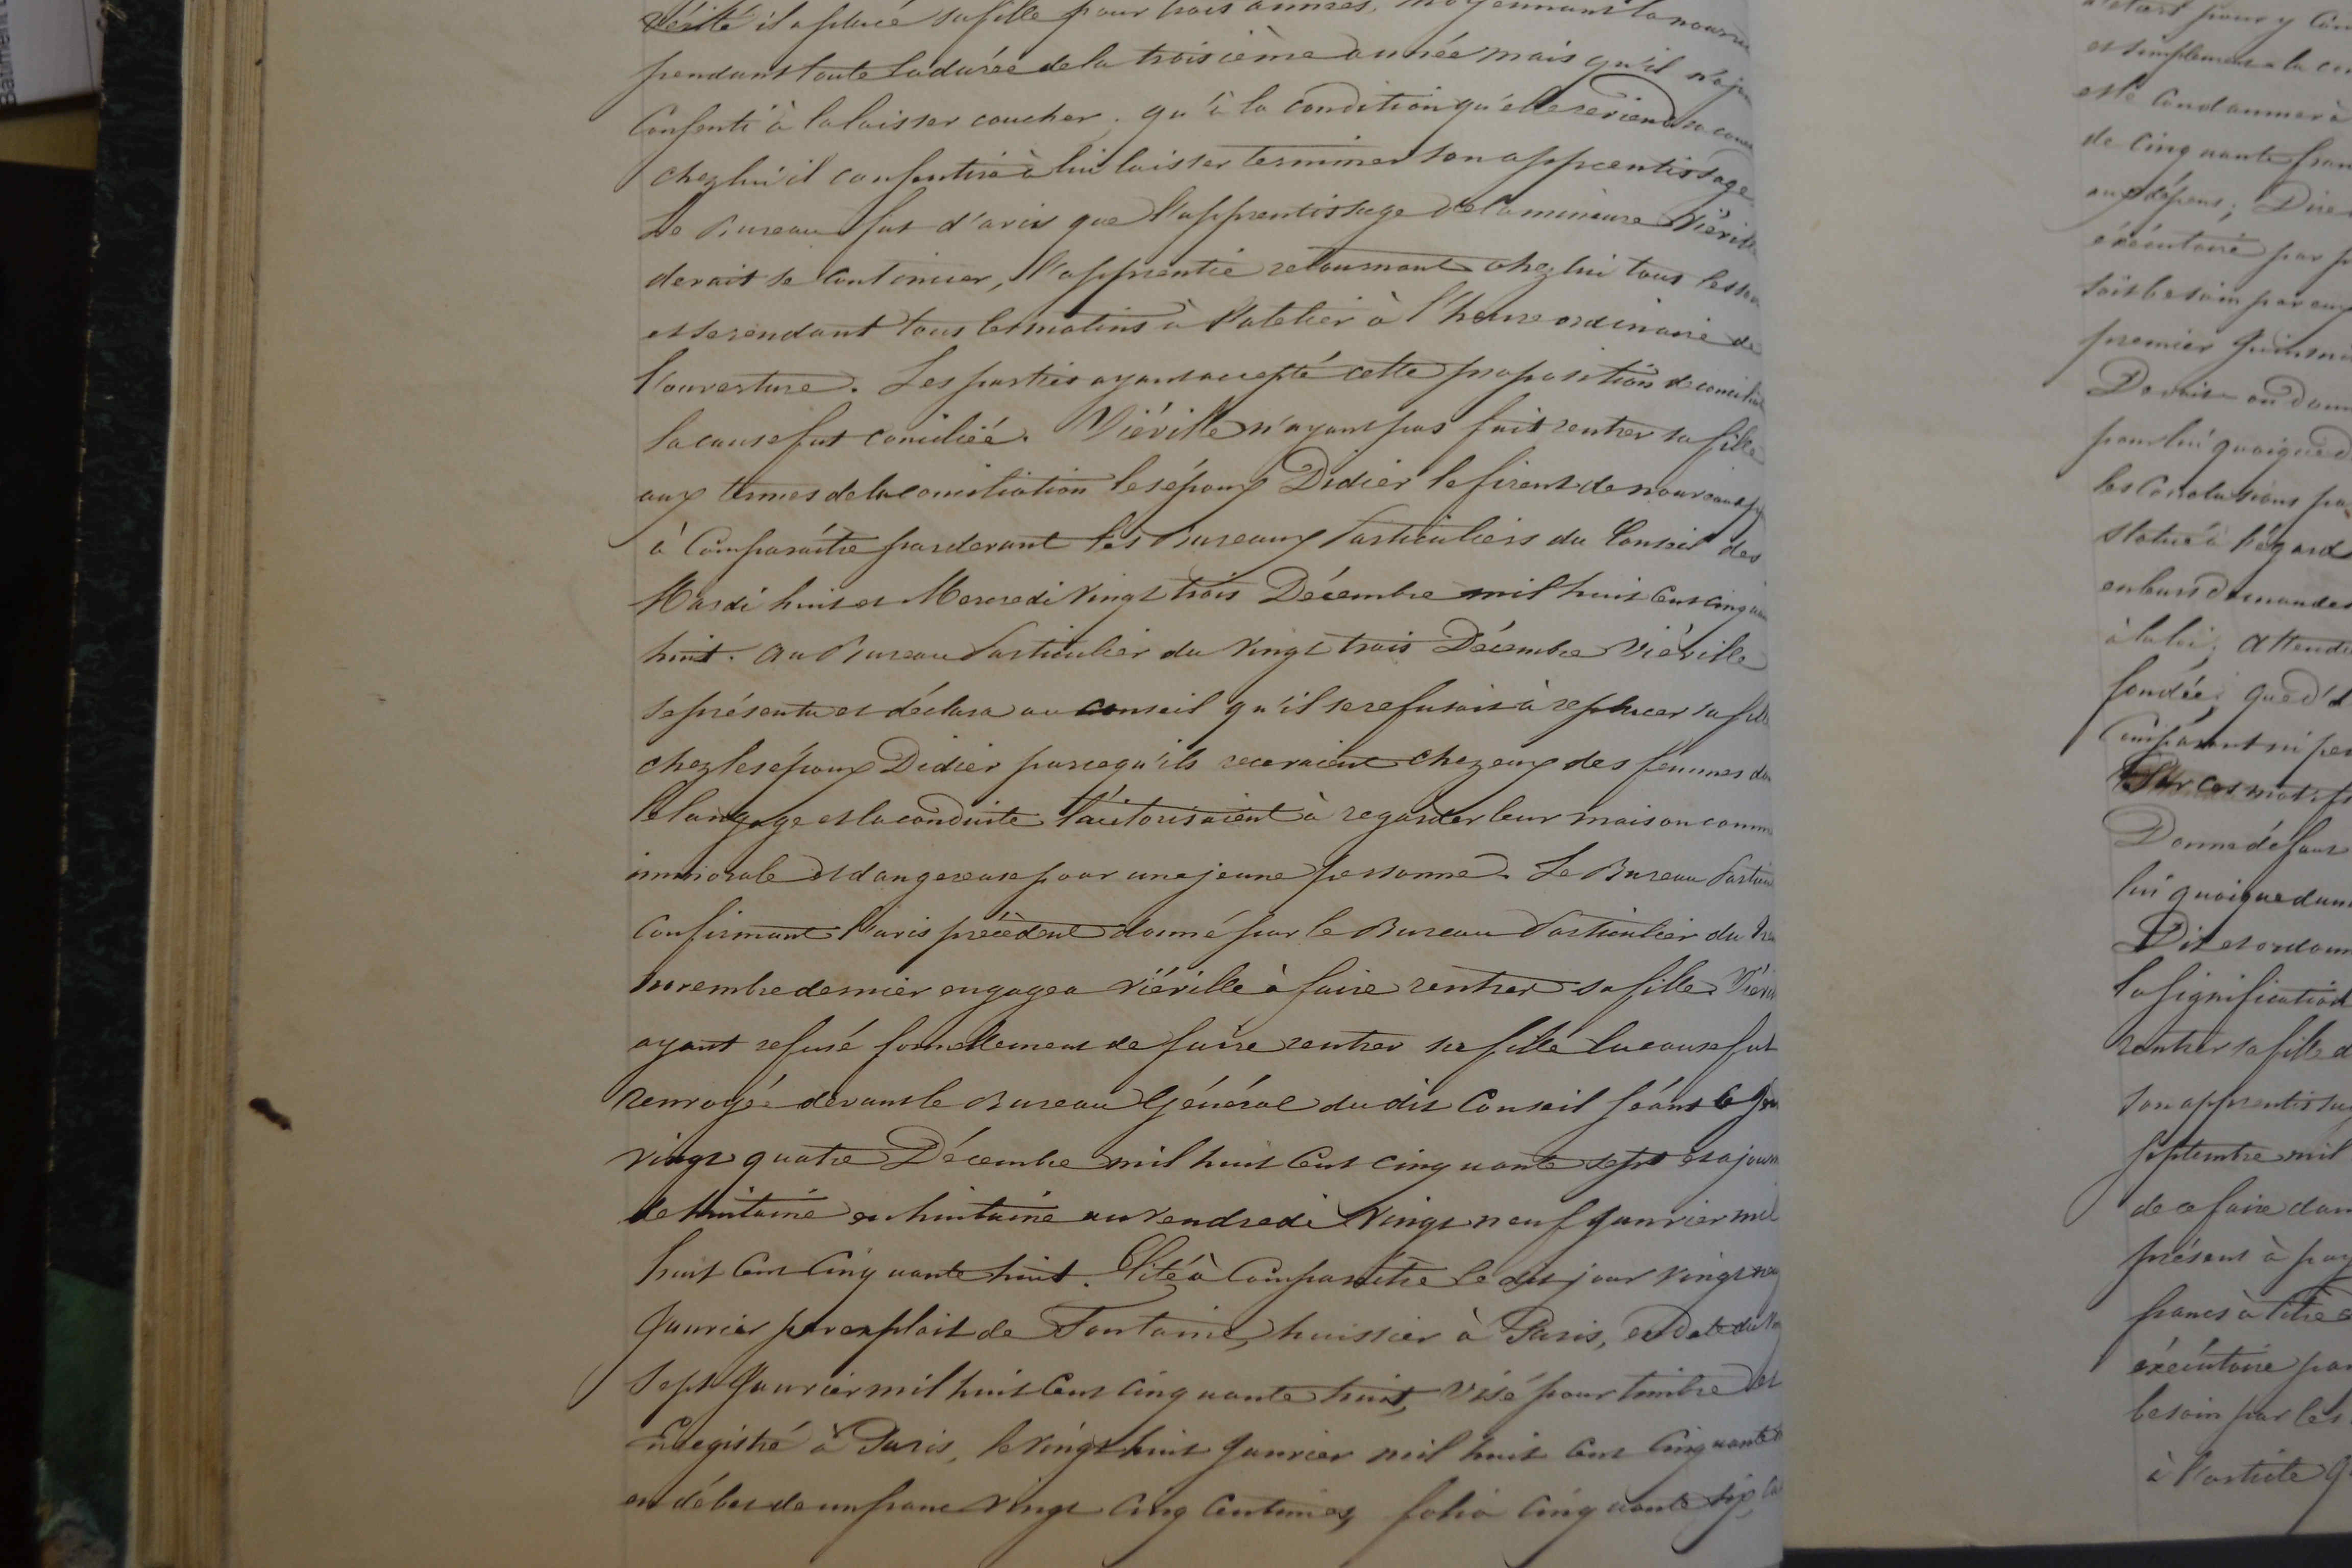 Bâtiment
vérité il a placé sa fille pour trois années, moyennant la nourri
pendant toute la durée de la troisième année mais qu'il n'a
Consenti à la laisser coucher. qu'à la condition qu'elle reviendra
chez lui il consentira à lui laisser terminer son apprentissage
Le Bureau fut d'avis que l'apprentissage de la mineure Viéville
devait se continuer, l'apprentie retournant chez lui tous les
et se rendant tous les matins à l'atelier à l'heure ordinaire de
l'ouverture. Les parties ayant accepté cette proposition de
la cause fut conciliée. Viéville n'ayant pas fait rentrer sa fille
aux termes de la conciliation les époux Didier le firent de nouveau
à Comparaître pardevant les Bureaux Particuliers du Conseil des
Mardi huit et Mercredi vingt trois Décembre mil huit Cent cinqua
huit. au Bureau Particulier du vingt trois Décembre Viéville
se présenta et déclara au conseil qu'il se refusait à replacer sa fille
chez les époux Didier parcequ'ils recevaient chez eux des femmes do
le langage et la conduite l'autorisaient à regarder leur maison comme
immorale et dangereuse pour une jeune personne. Le Bureau Particu
confirmant l'avis précédent donné par le Bureau Particulier du
novembre dernier engagea Viéville à faire rentrer sa fille. Viévi
ayant refusé formellement de faire rentrer sa fille la cause fut
renvoyée devant le Bureau Général dudit Conseil séant le
vingt quatre Décembre mil huit Cent cinquante sept et ajourn
de huitaine en huitaine au vendredi vingt neuf Janvier mil
huit Cent Cinquante huit. Cité à Comparaître le dit jour vingt neu
Janvier par exploit de Fontaine, huissier à Paris, en date du
sept Janvier mil huit Cent cinquante huit, visé pour timbre et
Enregistré à Paris, le vingt huit Janvier mil huit Cent Cinquante
en débet de un franc vingt Cinq Centimes, folio Cinquante six,
et simplement à la
et le Condamner à
de Cinquante fran
aux dépens; Dire
exécutoire par
soit besoin par
premier
pour lui quoique
les Conclusions
Statué à l'égard
en leurs demandes
à la loi; Attendu
fondée; que d'
Comparant ni
Par ces motifs
Donne défaut
lui quoique dum
Dit et ordonn
la signification
rentrer sa fille
son apprentissag
septembre mil
de ce faire dans
présent à pay
francs à titre
exécutoire par
besoin par les
à l'article